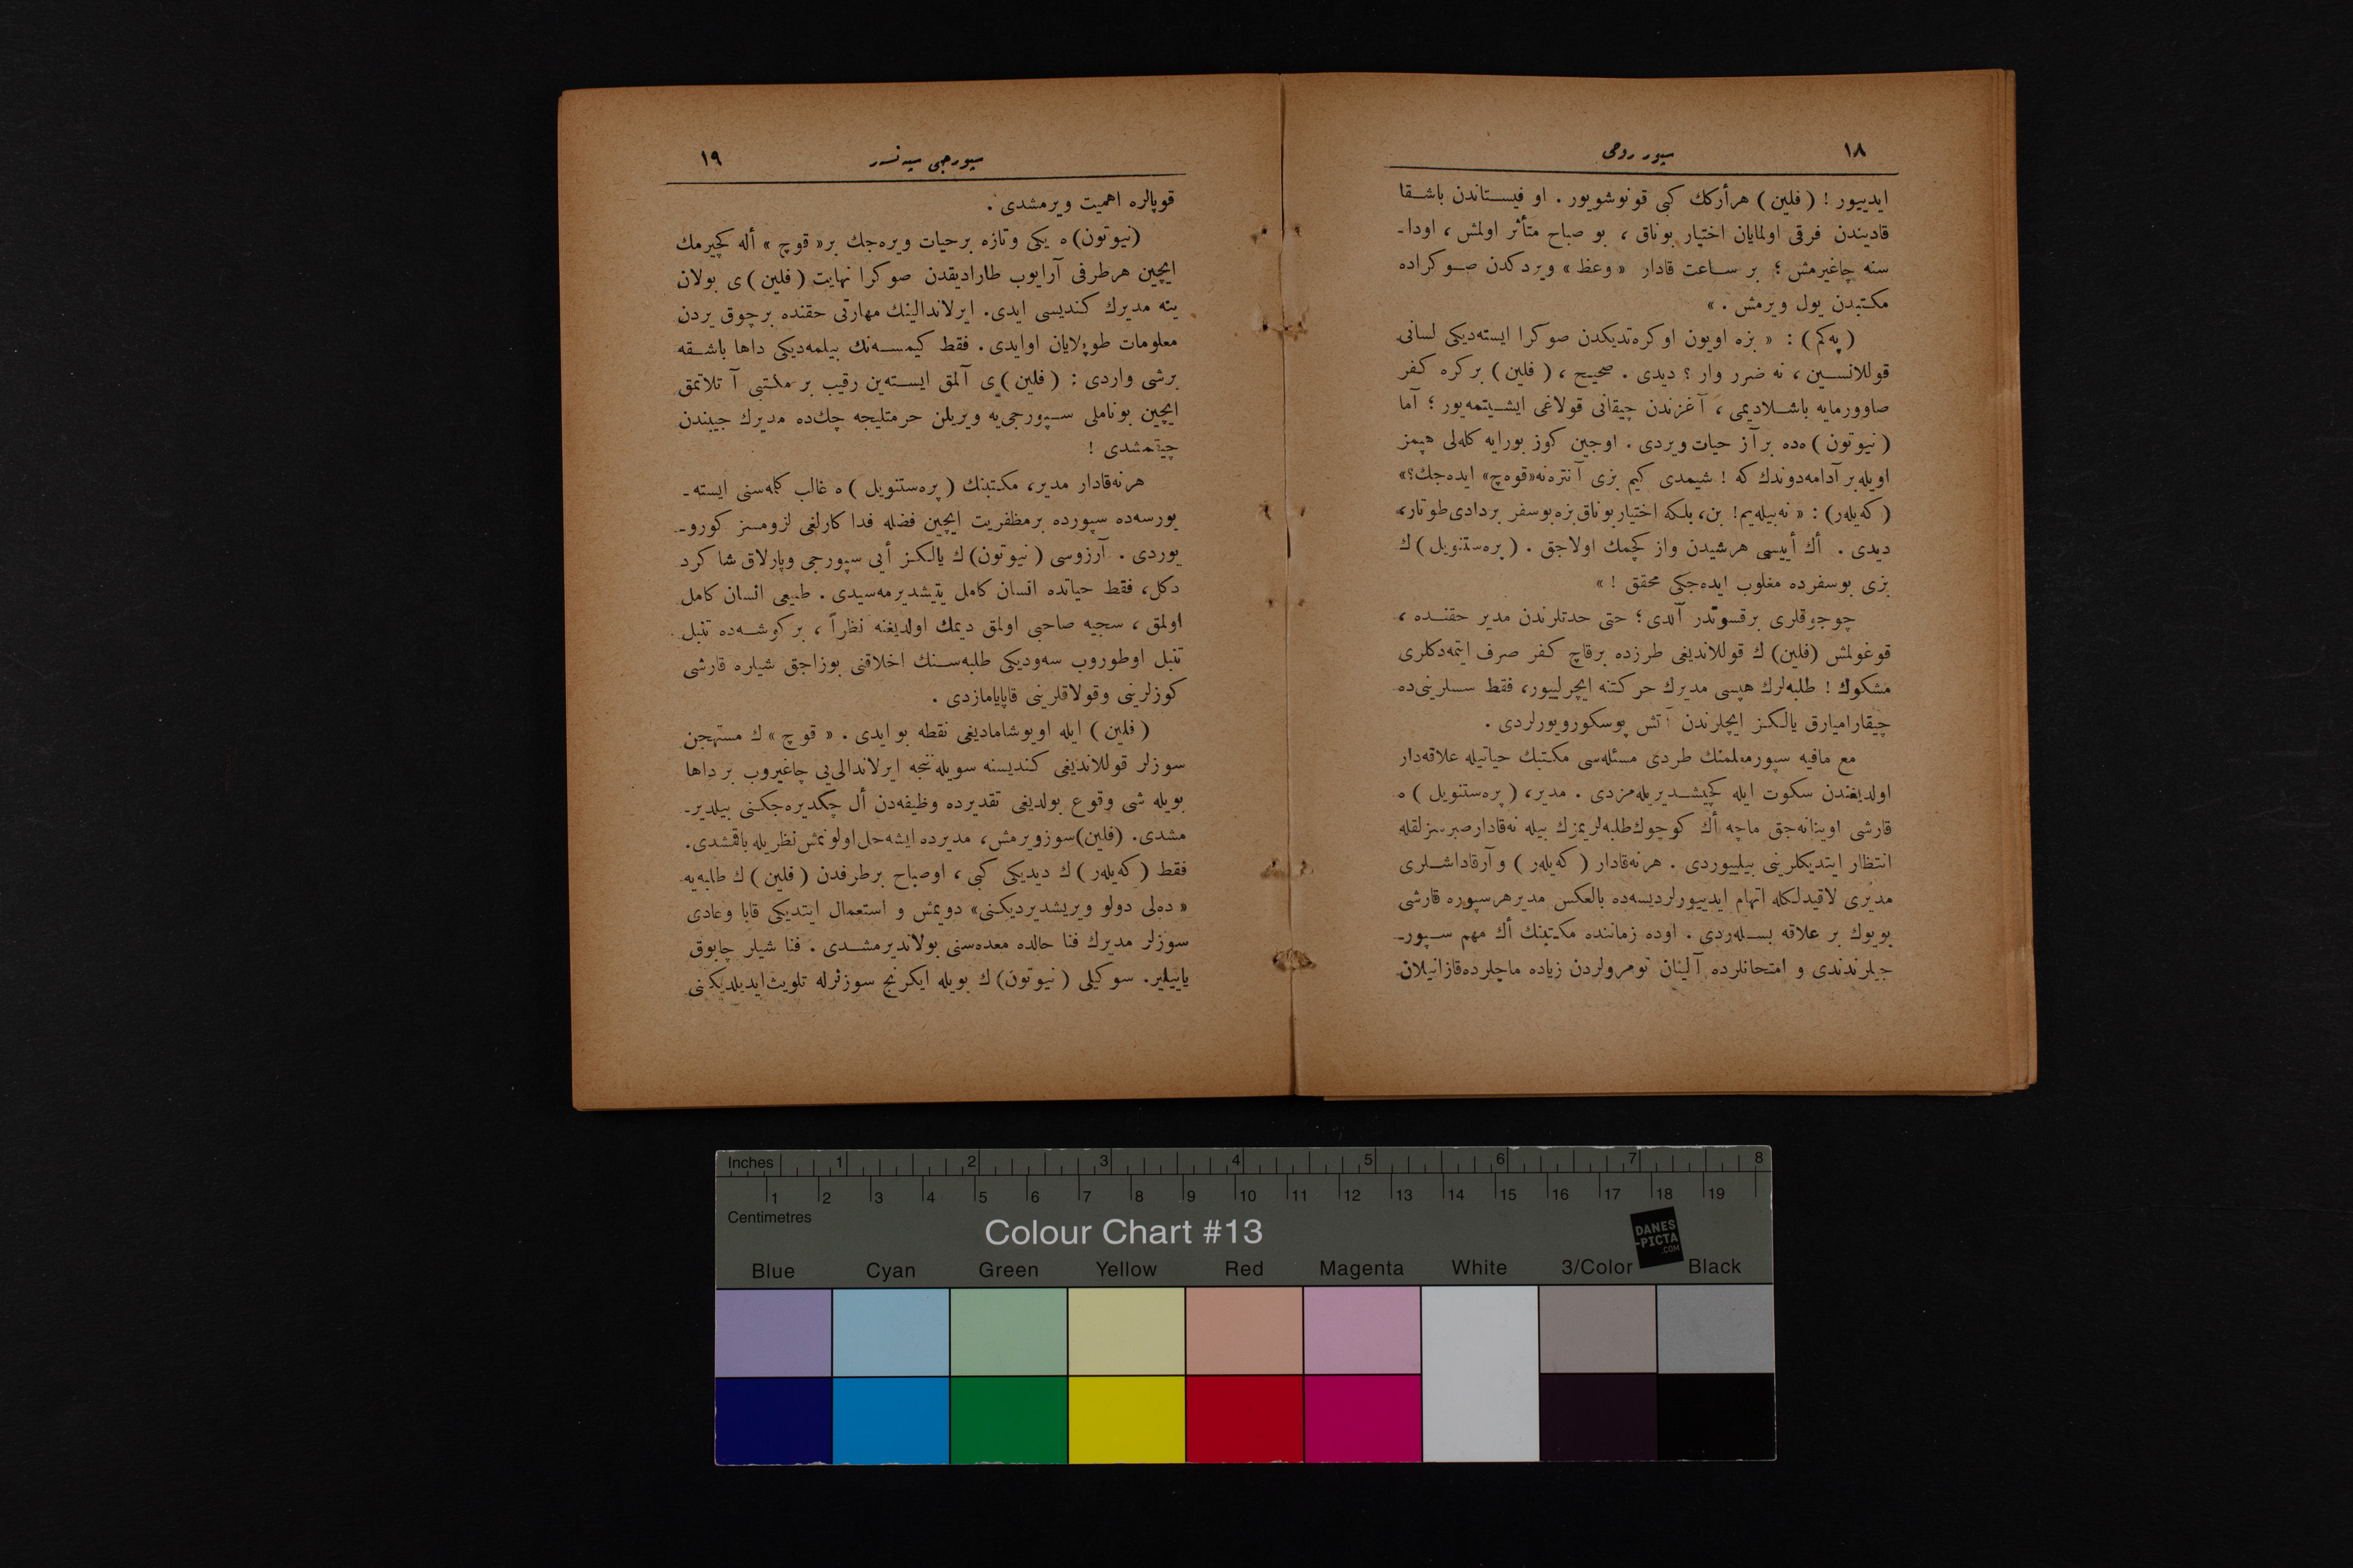 ١٨ سپور روحی
ایدییور ! (فلین) هرأركك كبی قونوشویور . او فیستاندن باشقا
قادیندن فرقی اولمایان اختیار بوناق ، بو صباح متأثر اولمش ، اودا-
سنه چاغیرمش ؛ بر ساعت قادار « وعظ » ویردكدن صوكراده
مكتبدن یول ویرمش . »
(پهكم) : « بزه اویون اوكرهتدیكدن صوكرا ایستهدیكی لسانی
قوللانسین ، نه ضرر وار ؟ دیدی . صحیح ، (فلین) بركره كفر
صاوورمایه باشلادیمی ، آغزندن چیقانی قولاغی ایشیتمهیور ؛ آما
(نیوتون) هده بر آز حیات ویردی . اوجین كوز بورایه كلهلی هپمز
اویله بر آدامه دوندك كه ! شیمدی كیم بزی آنترهنه «قوهچ» ایدهجك؟»
(كهیلهر) : « نه بیلهیم! بن، بلكه اختیار بوناق بزه بوسفر بردادی طوتار،
دیدی . أك أییسی هرشیدن واز كچمك اولاجق . (پرهستنویل) ك
بزی بوسفرده مغلوب ایدهجكی محقق ! »
چوجوقلری برقسوتدر آلدی ؛ حتی حدتلرندن مدیر حقنده ،
قوغولمش (فلین) ك قوللاندیغی طرزده برقاچ كفر صرف ایتمهدكلری
مشكوك ! طلبهلرك هپسی مدیرك حركتنه ایچرلییور، فقط سسلرینیده
چیقارامیارق یالكز ایچلرندن آتش پوسكورویورلردی .
مع مافیه سپورمعلمنك طردی مسئلهسی مكتبك حیاتیله علاقهدار
اولدیغندن سكوت ایله كچیشدیریلهمزدی . مدیر، (پرهستنویل) ه
قارشی اوینانهجق ماچه أك كوچوك طلبهلریمزك بیله نهقادار صبرسزلقله
انتظار ایتدیكلرینی بیلییوردی . هرنهقادار (كهیلهر) و آرقاداشلری
مدیری لاقیدلكله اتهام ایدییورلردیسهده بالعكس مدیر هرسپوره قارشی
بویوك بر علاقه بسلهردی . اوده زماننده مكتبنك أك مهم سپور-
جیلرندندی و امتحانلرده آلینان نومرولردن زیاده ماچلرده قازانیلان
سپورجی سپهنسهر ١٩
قوپالره اهمیت ویرمشدی .
(نیوتون) ه یكی وتازه برحیات ویرهجك بر « قوچ » أله كچیرمك
ایچین هرطرفی آرایوب طارادیقدن صوكرا نهایت (فلین) ی بولان
ینه مدیرك كندیسی ایدی. ایرلاندالینك مهارتی حقنده برچوق یردن
معلومات طوپلایان اوایدی . فقط كیمسهنك بیلمهدیكی داها باشقه
برشی واردی : (فلین) ی آلمق ایستهین رقیب بر مكتبی آتلاتمق
ایچین بوناملی سپورجییه ویریلن حرمتلیجه چكده مدیرك جیبندن
چیقمشدی !
هرنهقادار مدیر، مكتبنك (پرهستنویل) ه غالب كلمهسنی ایسته-
یورسهده سپورده برمظفریت ایچین فضله فداكارلغی لزومسز كورو-
یوردی . آرزوسی (نیوتون) ك یالكز أیی سپورجی وپارلاق شاكرد
دكل، فقط حیاتده انسان كامل یتیشدیرمهسیدی . طبیعی انسان كامل
اولمق ، سجیه صاحبی اولمق دیمك اولدیغنه نظراً ، بركوشهده تنبل
تنبل اوطوروب سهودیكی طلبهسنك اخلاقنی بوزاجق شیلره قارشی
كوزلرینی وقولاقلرینی قاپایامازدی .
(فلین) ایله اویوشامادیغی نقطه بو ایدی . « قوچ » ك مستهجن
سوزلر قوللاندیغی كندیسنه سویلهنجه ایرلاندالییی چاغیروب بر داها
بویله شی وقوع بولدیغی تقدیرده وظیفهدن أل چكدیرهجكنی بیلدیر-
مشدی. (فلین) سوزویرمش، مدیرده ایشه حل اولونمش نظریله باقمشدی.
فقط (كهیلهر) ك دیدیكی كبی ، اوصباح برطرفدن (فلین) ك طلبهیه
« دهلی دولو ویریشدیردیكنی» دویمش و استعمال ایتدیكی قابا وعادی
سوزلر مدیرك فنا حالده معدهسنی بولاندیرمشدی . فنا شیلر چابوق
یاییلیر. سوكیلی (نیوتون) ك بویله ایكرنج سوزلرله تلویث ایدیلدیكنی
Inches 1 2 3 4 5 6 7 8
1 2 3 4 5 6 7 8 9 10 11 12 13 14 15 16 17 18 19
Centimetres
Colour Chart #13
DANES
-PICTA
.COM
Blue Cyan Green Yellow Red Magenta White 3/Color Black